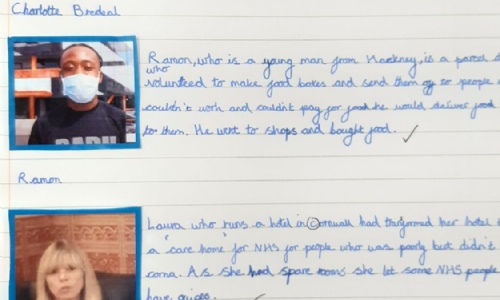 Charlotte Bredeal
Ramon, who is a young man from Hackney, is a parcel d
who
volunteed to make food boxes and send them off so people
couldn't work and couldn't pay for food he would deliver food
to them. He went to shops and bought food.
Ramon
Laura who runs a hotel in Cornwall had transformed her hotel
a "care home" for NHS for people who was poorly but didn't
corna. As she had spare rooms she let some NHS people
have